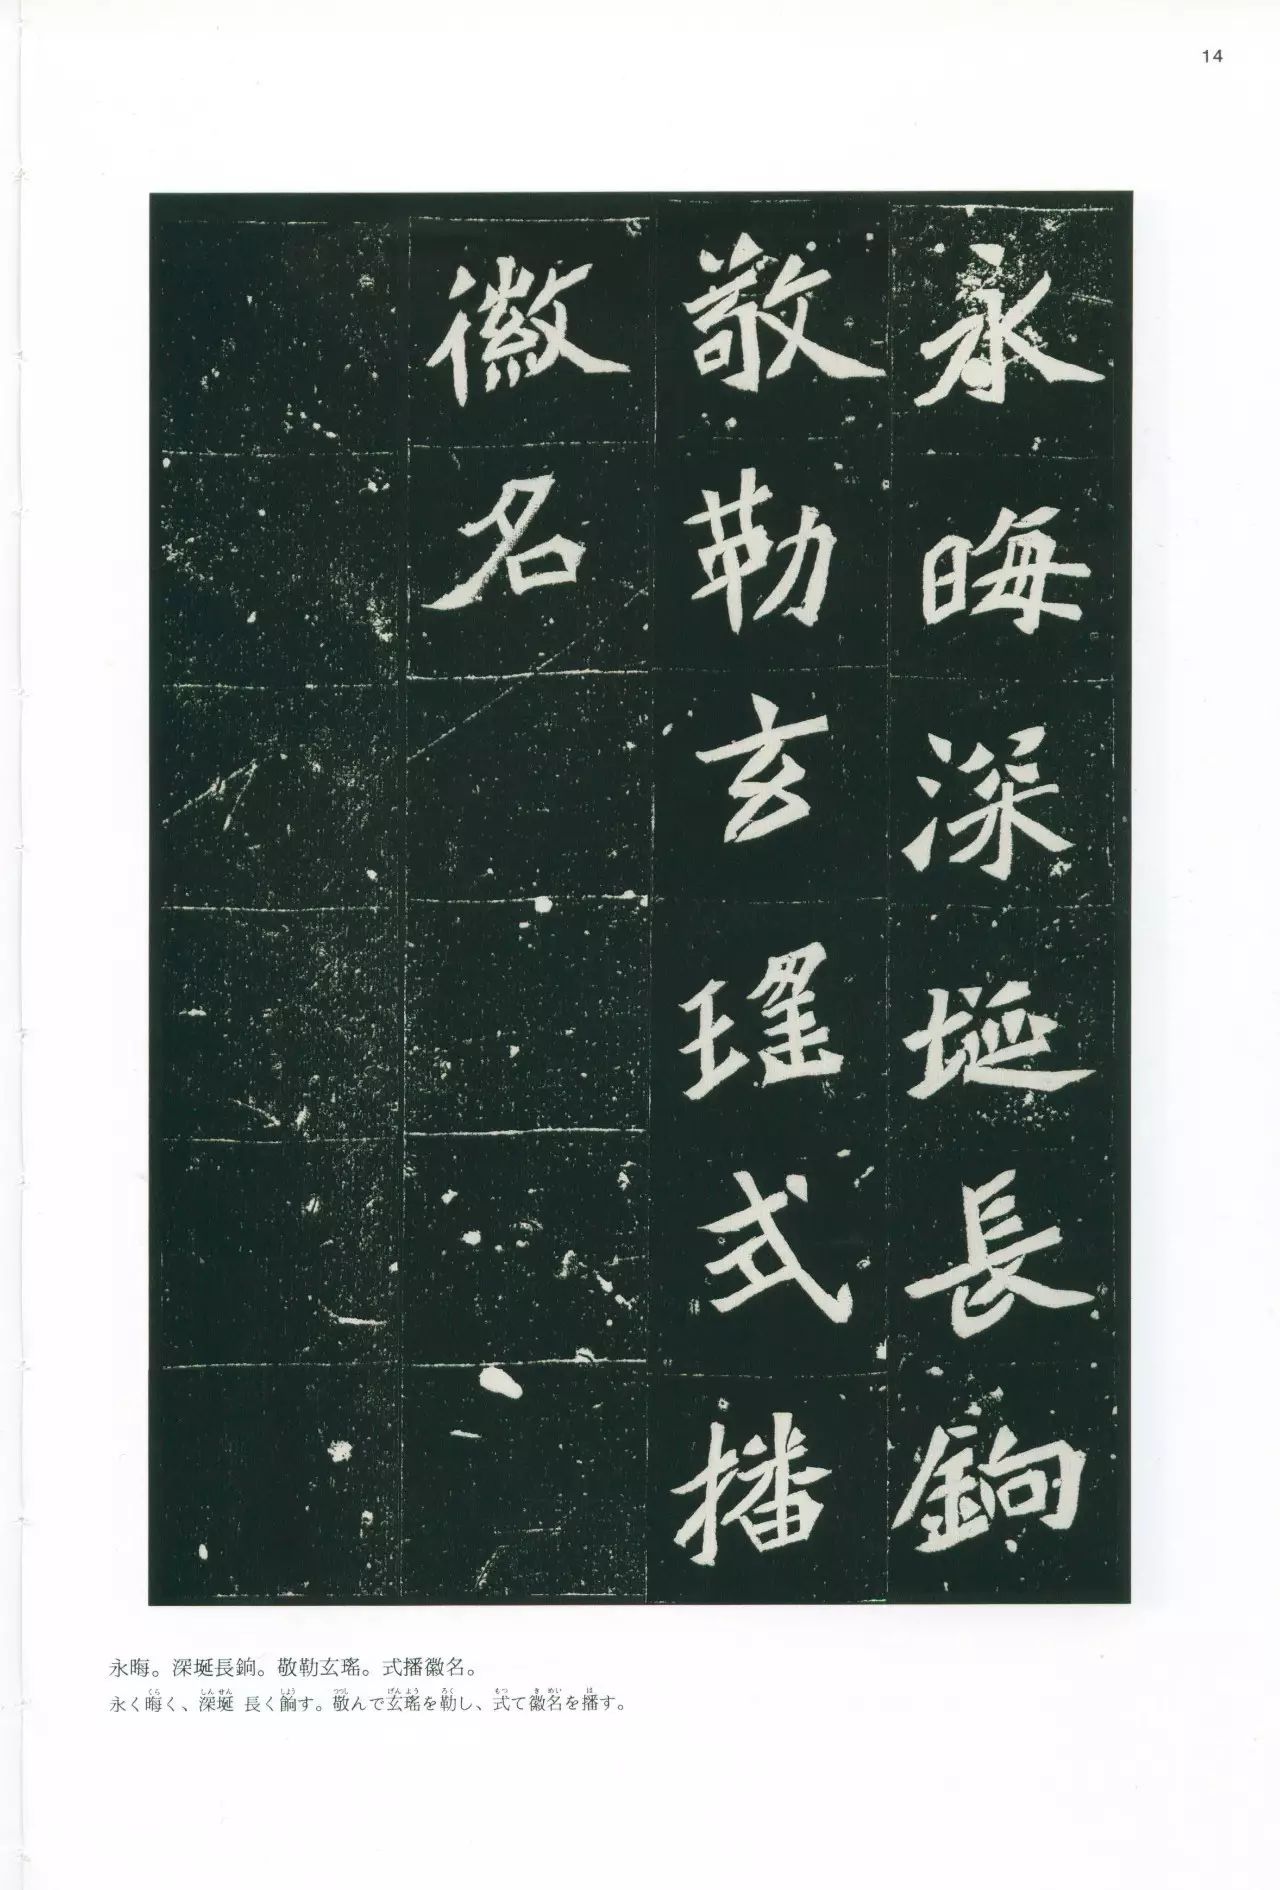 14
永晦深埏長銄
敬勒玄瑤式播
徽名
永晦。深埏長銄。敬勒玄瑤。式播徽名。
永く晦く、深埏 長く餉す。敬んで玄瑤を勒し、式て徽名を播す。